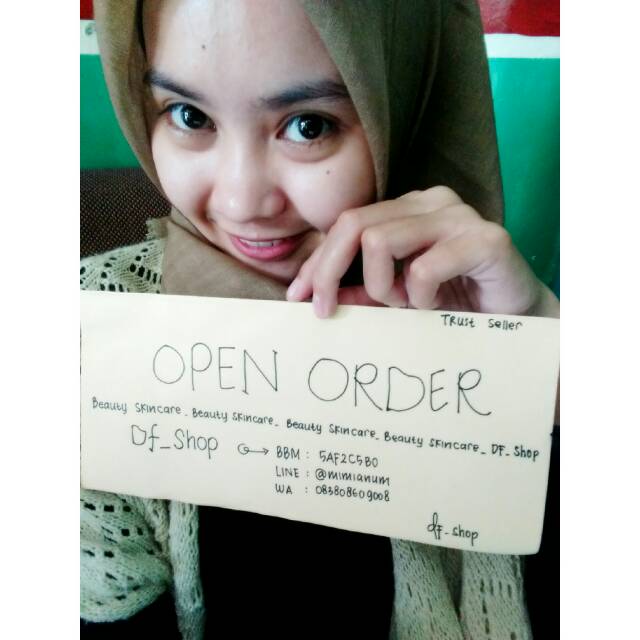 Trust Seller
OPEN ORDER
Beauty Skincare_ Beauty Skincare_ Beauty Skincare_ Beauty Skincare_ DF_Shop
Df_Shop → BBM : 5AF2C5B0
LINE : @mimianum
WA : 083808609008
df_shop